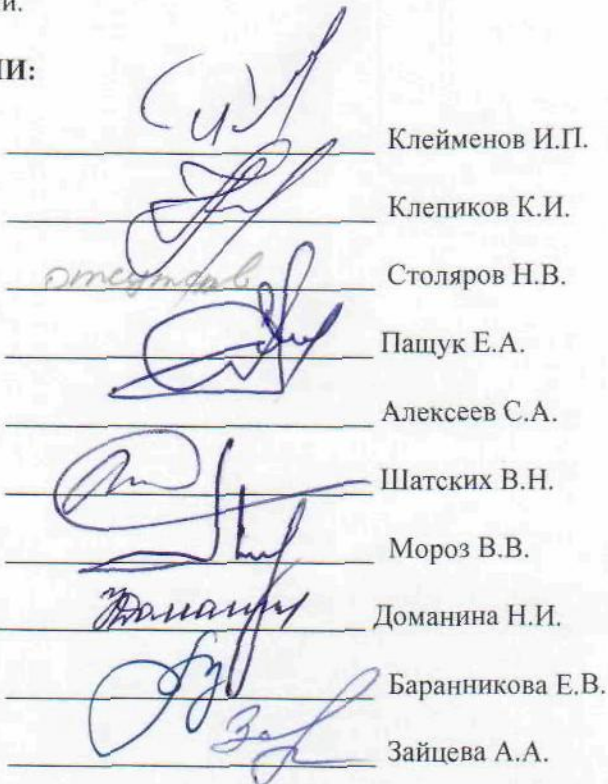 и.
ИИ:
Клейменов И.П.
Клепиков К.И.
отсутств Столяров Н.В.
Пащук Е.А.
Алексеев С.А.
Шатских В.Н.
Мороз В.В.
Доманина Н.И.
Баранникова Е.В.
Зайцева А.А.